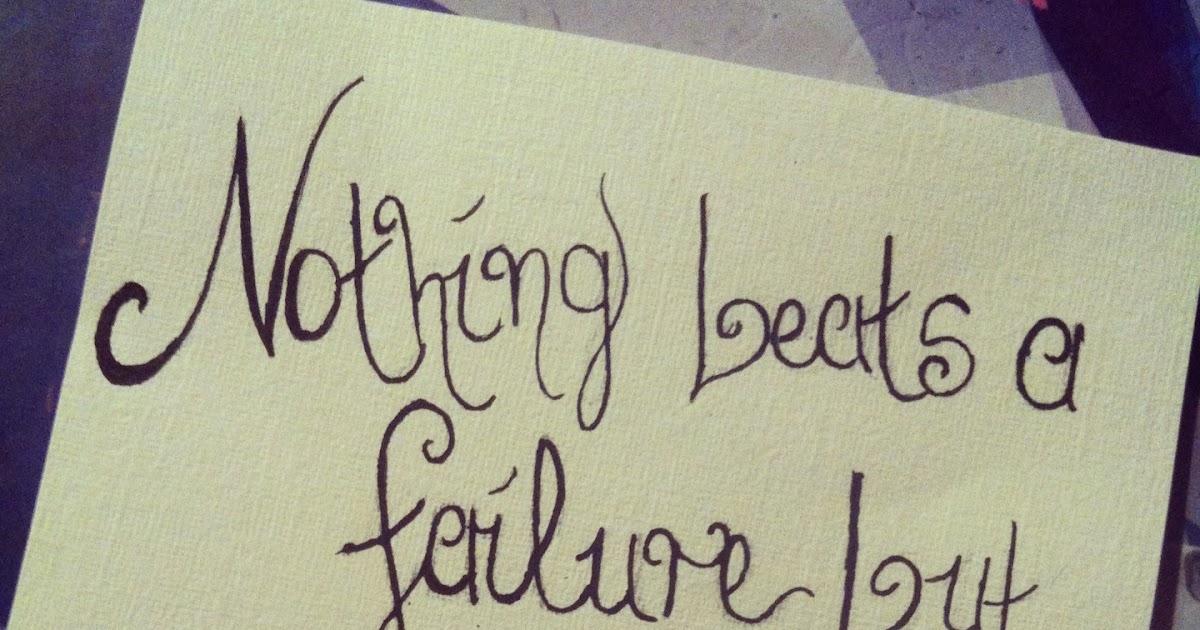 Nothing beats a
failure but